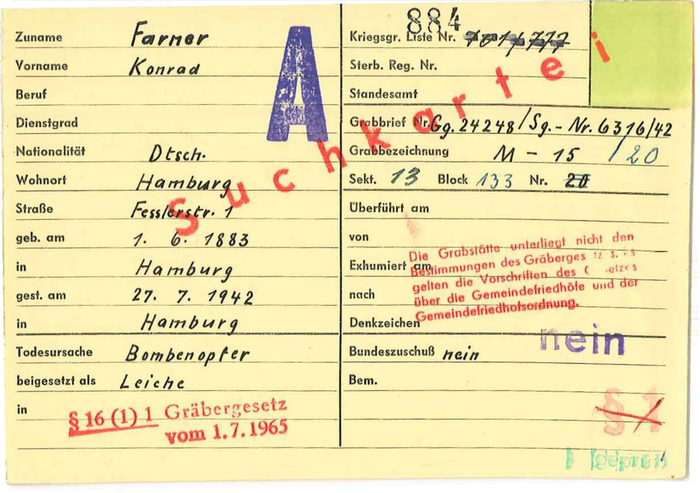 Zuname Farner
Vorname Konrad
Beruf
Dienstgrad
Nationalität Dtsch.
Wohnort Hamburg
Straße Fesslerstr. 1
geb. am 1. 6. 1883
in Hamburg
gest. am 27. 7. 1942
in Hamburg
Todesursache Bombenopfer
beigesetzt als Leiche
in
§ 16 (1) 1 Gräbergesetz
vom 1.7.1965
A
Suchkartei
884
Kriegsgr. Liste Nr.
Sterb. Reg. Nr.
Standesamt
Grabbrief Nr. Gg. 24248/Sg.-Nr. 6316/42
Grabbezeichnung M - 15 /20
Sekt. 13 Block 133 Nr. 20
Überführt am
von
Exhumiert am
nach
Denkzeichen
Die Grabstätte unterliegt nicht den
Bestimmungen des Gräberges
gelten die Vorschriften des
über die Gemeindefriedhöfe und der
Gemeindefriedhofsordnung.
nein
Bundeszuschuß nein
Bem.
§ 1
geprüft